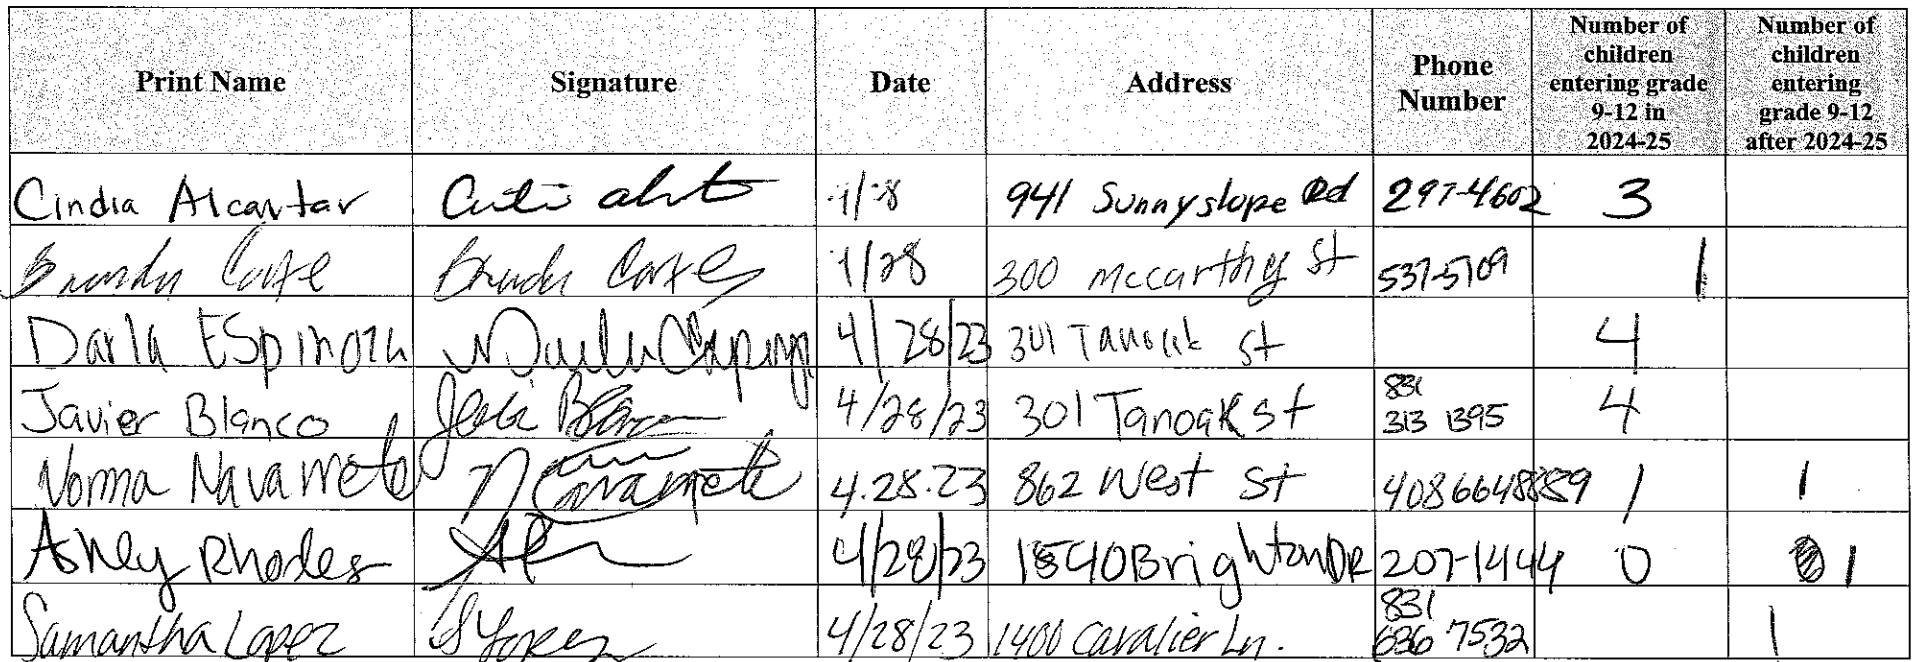 Print Name Signature Date Address Phone Number Number of children entering grade 9-12 in 2024-25 Number of children entering grade 9-12 after 2024-25
Cindia Alcantar 941 Sunnyslope Rd 297-4602 3
300 mccarthy St 537-5709 1
Darla Espinoza 4/28/23 301 Tanoak st 4
Javier Blanco 4/28/23 301 Tanoak st 831 313 1395 4
Norma Navarrete 4.28.23 862 West St 1 1
Ashley Rhodes 4/28/23 1540 Brighton DR 207-1444 0 1
Samantha Lopez S Lopez 4/28/23 1400 Cavalier Ln. 831 636 7532 1